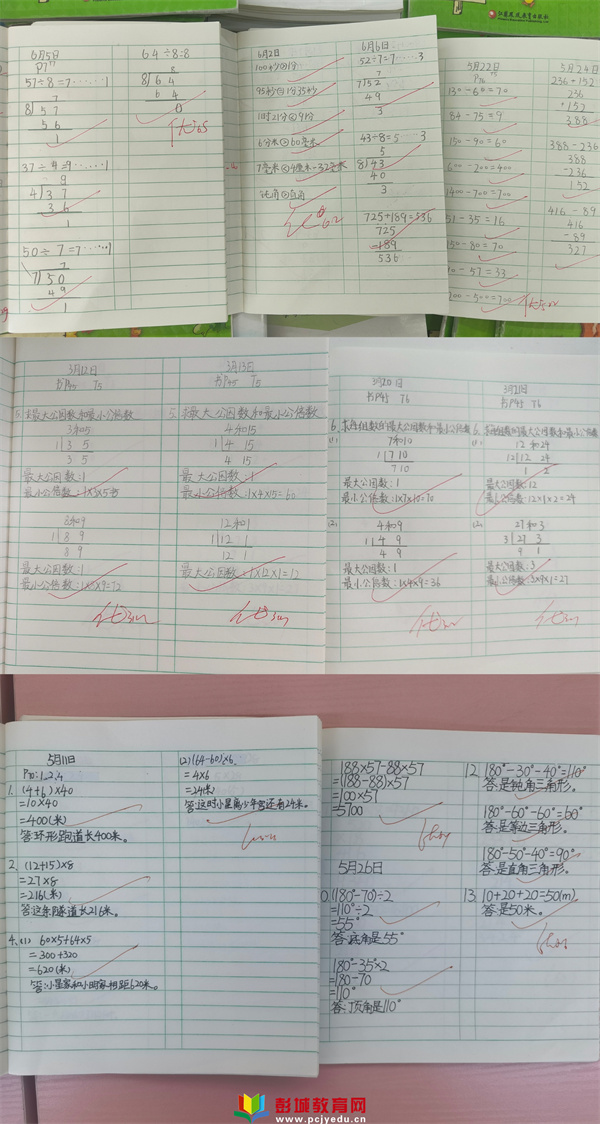 6月5日
P17
57÷8=7……1
7
8)57
56
1
37÷4=9……1
9
4)37
36
1
50÷7=7……1
7
7)50
49
1
64÷8=8
8
8)64
64
0
6月2日
6分米 60厘米
725+189=536
725
189
536
6月6日
52÷7=7……3
7
7)52
49
3
43÷8=5……3
5
8)43
40
3
5月22日
130-60=70
84-75=9
150-90=60
600-200=400
1400-700=700
51-35=16
150-80=70
90-57=33
5月24日
236+152
236
+152
388
388-236
388
-236
152
416-89
416
-89
327
3月12日
书P45 T5
5.求最大公因数和最小公倍数
3和5
1|3 5
3 5
最大公因数:1
8和9
1|8 9
8 9
最大公因数:1
最小公倍数:1×8×9=72
3月13日
书P45 T5
5.求最大公因数和最小公倍数
4和15
1|4 15
4 15
最大公因数:1
最小公倍数:1×4×15=60
12和1
1|12 1
12 1
最大公因数:1×12×1=12
3月20日
书P45 T6
7和10
1|7 10
7 10
最大公因数:1
最小公倍数:1×7×10=70
(2)
4和9
1|4 9
4 9
最大公因数:1
最小公倍数:1×4×9=36
3月21日
书P45 T6
12和24
12|12 24
1 2
最大公因数:12
最小公倍数:12×1×2=24
(2)
27和3
3|27 3
9 1
最大公因数:3
最小公倍数:3×9×1=27
5月11日
P70:1、2、4
1. (4+6)×40
=10×40
=400(米)
答:环形跑道长400米。
2. (12+15)×8
=27×8
=216(米)
答:这条隧道长216米。
4. (1) 60×5+64×5
=300+320
=620(米)
答:小星家和小明家相距620米。
(2)(64-60)×6
=4×6
=24(米)
答:这时小星离少年宫还有24米。
188×57-88×57
=(188-88)×57
=100×57
=5700
5月26日
(180°-70)÷2
=110°÷2
=55°
答:底角是55°
180°-35°×2
=180-70
=110°
答:顶角是110°
12. 180°-30°-40°=110°
答:是钝角三角形。
180°-60°-60°=60°
答:是等边三角形。
180°-50°-40°=90°
答:是直角三角形。
13. 10+20+20=50(m)
答:是50米。
彭城教育网
www.pcjyedu.cn